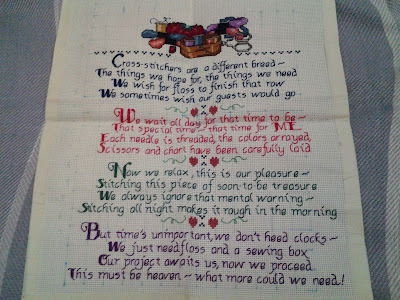 Cross-stitchers are a different breed~
The things we hope for, the things we need
We wish for floss to finish that row
We sometimes wish our guests would go.
We wait all day for that time to be~
That special time~ that time for ME.
Each needle is threaded, the colors arrayed,
Scissors and chart have been carefully laid.
Now we relax, this is our pleasure~
Stitching this piece of soon to be treasure
We always ignore that mental warning~
Stitching all night makes it rough in the morning
But time's unimportant, we don't need clocks~
We just need floss and a sewing box
Our project awaits us, now we proceed
This must be heaven~ what more could we need!